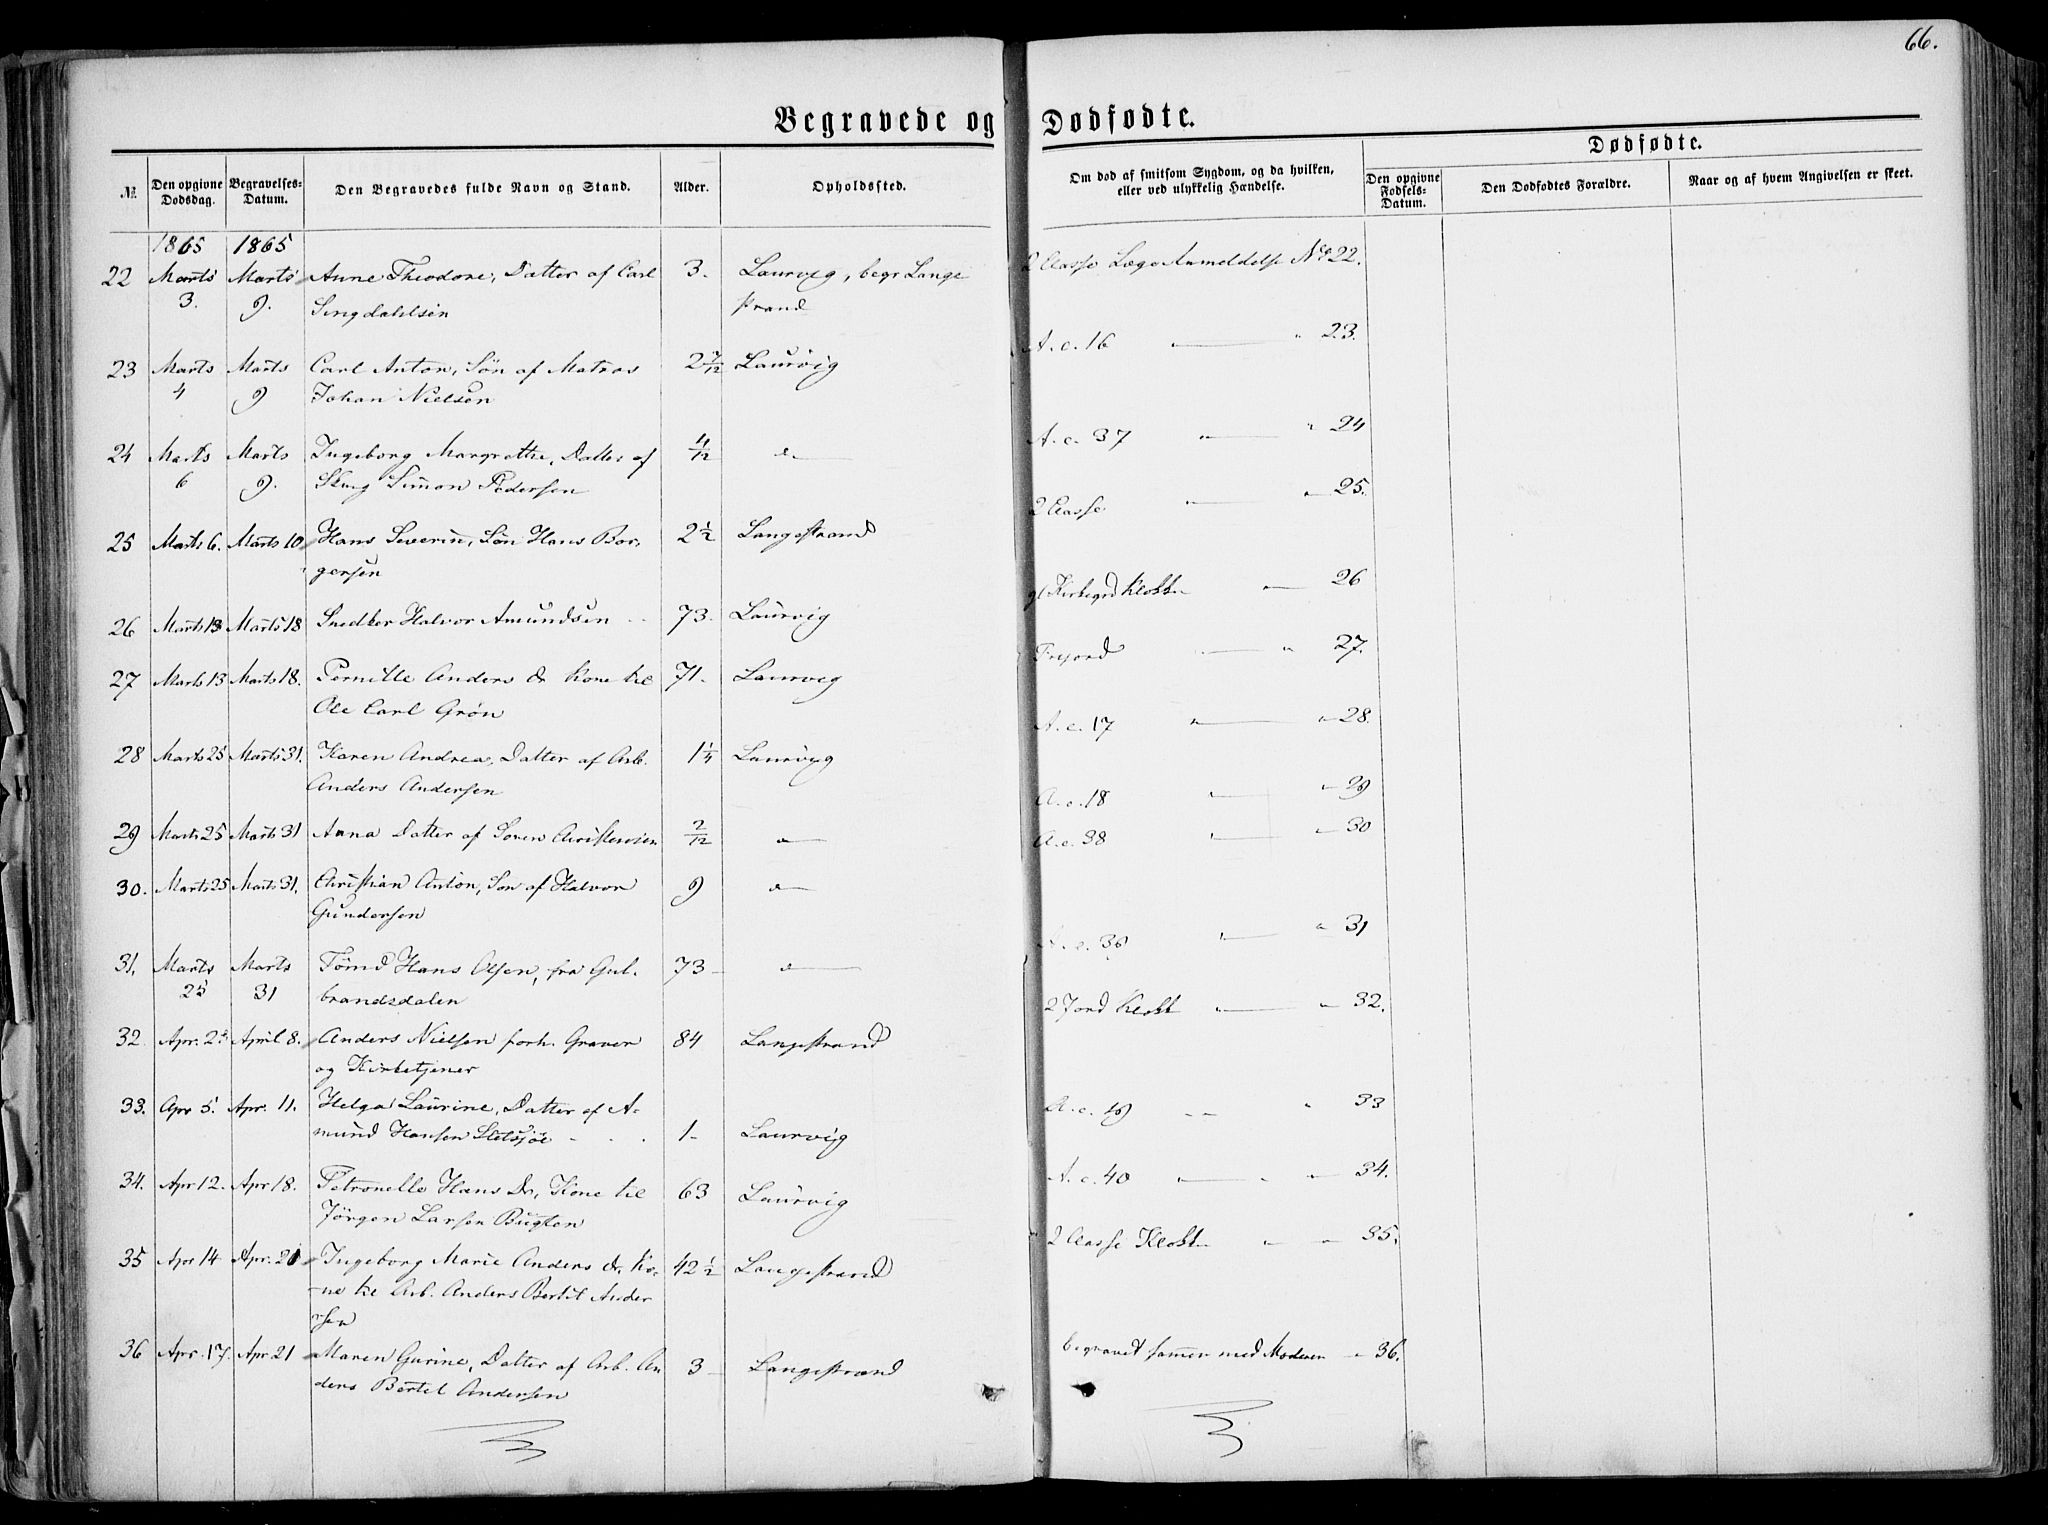 66.
Begravede og Dødfødte.
Dødfødte.
№.
Den opgivne Dødsdag.
Begravelses-Datum.
Den Begravedes fulde Navn og Stand.
Alder.
Opholdssted.
Om død af smitsom Sygdom, og da hvilken, eller ved ulykkelig Hændelse.
Den opgivne Fødsels-Datum.
Den Dødfødtes Forældre.
Naar og af hvem Angivelsen er skeet.
1865 1865
22 Marts 3. Marts 9. Anne Theodore, Datter af Carl 3. Laurvig, begr Lange 2 Classe Læge Anmeldelse No 22.
Singdahlsen strand
23 Marts 4 Marts 9 Carl Anton, Søn af Matros 2 7/12 Laurvig A. c. 16 " 23.
Johan Nielsen
24 Marts 6 Marts 9. Ingeborg Margrethe, Datter af 4/12 d A. c. 37 " 24
Simon Pedersen
25 Marts 6. Marts 10 Hans Severin, Søn Hans Bor- 2 1/2 Langestrand 2 Classe " 25.
gersen
26 Marts 13 Marts 18 Snedker Halvor Amundsen 73. Laurvig gl Kirkegrd Klokk 26
27 Marts 13 Marts 18. Pernille Anders dr Kone til 71. Laurvig Frijord " 27.
Ole Carl Grøn
28 Marts 25 Marts 31. Karen Andrea, Datter af Arb. 1 1/4 Laurvig A. c. 17 " 28.
Anders Andersen
29 Marts 25 Marts 31 Anna Datter af Søren Christensen 2/12 d A. c. 18 " 29
30. Marts 25 Marts 31. Christian Anton, Søn af Halvor 9 d A. c. 38 " 30
Gundersen
31. Marts 25 Marts 31 Tømd Hans Olsen, fra Gul- 73 d A. c. 39 " 31
brandsdalen
32. Apr. 2 April 8. Anders Nielsen forh. Graver 84 Langestrand 2 Jord Klokk " 32.
og Kirketjener
33. Apr 5. Apr. 11. Helga Laurine, Datter af A- A. c. 19 " 33
mund Hansen Sletsjøe 1 Laurvig
34. Apr 12. Apr 18. Petronelle Hans Dr, Kone til 63 Laurvig A. c. 40 " 34.
Jørgen Larsen Bugten
35 Apr 14 Apr. 21 Ingeborg Marie Anders dr. Ko- 42 1/2 Langestrand 2 Classe Klokk " 35.
ne til Arb. Anders Bertil Ander
sen
36 Apr. 17. Apr 21 Maren Gurine, Datter af Arb. An 3 Langestrand begravet sammen med Moderen " 36.
ders Bertel Andersen